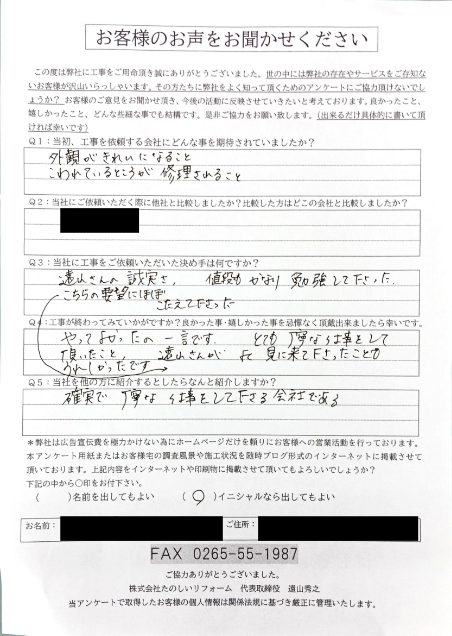 お客様のお声をお聞かせください
この度は弊社に工事をご用命頂き誠にありがとうございました。世の中には弊社の存在やサービスをご存知な
いお客様が沢山いらっしゃいます。その方たちに弊社をよく知って頂くためのアンケートにご協力頂けないでし
ょうか？ お客様のご意見をお聞かせ頂き、今後の活動に反映させていきたいと考えております。良かったこと、
嬉しかったこと、どんな些細な事でも結構です。是非ご協力をお願い致します。（出来るだけ具体的に書いて頂
ければ幸いです）
Q1：当初、工事を依頼する会社にどんな事を期待されていましたか？
外観がきれいになること
こわれているところが修理されること
Q2：当社にご依頼いただく際に他社と比較しましたか？比較した方はどこの会社と比較しましたか？
Q3：当社に工事をご依頼いただいた決め手は何ですか？
遠山さんの誠実さ、値段もかなり勉強して下さった
こちらの要望にほぼ
こたえて下さった
Q4：工事が終わってみていかがですか？良かった事・嬉しかった事を忌憚なく頂戴出来ましたら幸いです。
やってよかったの一言です。とても丁寧な仕事をして
頂いたこと、遠山さんが よく見に来て下さったことも
うれしかったです
Q5：当社を他の方に紹介するとしたらなんと紹介しますか？
確実で丁寧な仕事をして下さる会社である
＊弊社は広告宣伝費を極力かけない為にホームページだけを頼りにお客様への営業活動を行っております。
本アンケート用紙またはお客様宅の調査風景や施工状況を随時ブログ形式のインターネットに掲載させて
頂いております。上記内容をインターネットや印刷物に掲載させて頂いてもよろしいでしょうか？
下記の中から○印をお付下さい。
（ ）名前を出してもよい （○）イニシャルなら出してもよい
お名前： ご住所：
FAX 0265-55-1987
ご協力ありがとうございました。
株式会社たのしいリフォーム 代表取締役 遠山秀之
当アンケートで取得したお客様の個人情報は関係法規に基づき厳正に管理いたします。